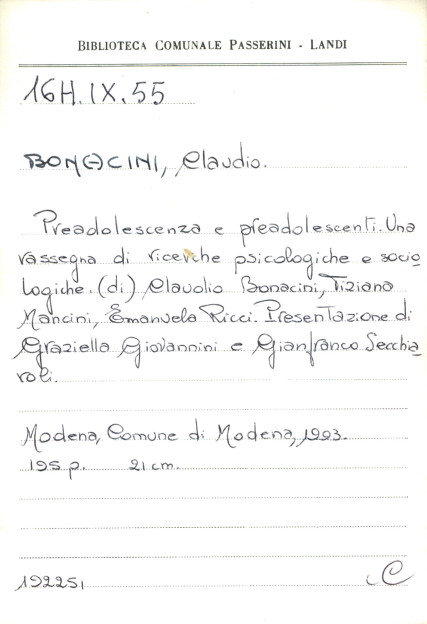 BIBLIOTECA COMUNALE PASSERINI - LANDI
16H.IX.55
BONACINI, Claudio.
Preadolescenza e preadolescenti. Una
rassegna di ricerche psicologiche e socio
logiche. (di) Claudio Bonacini, Tiziana
Mancini, Emanuela Ricci. Presentazione di
Graziella Giovannini e Gianfranco Secchia
roli.
Modena, Comune di Modena, 1993.
195 p. 21 cm.
192251
C